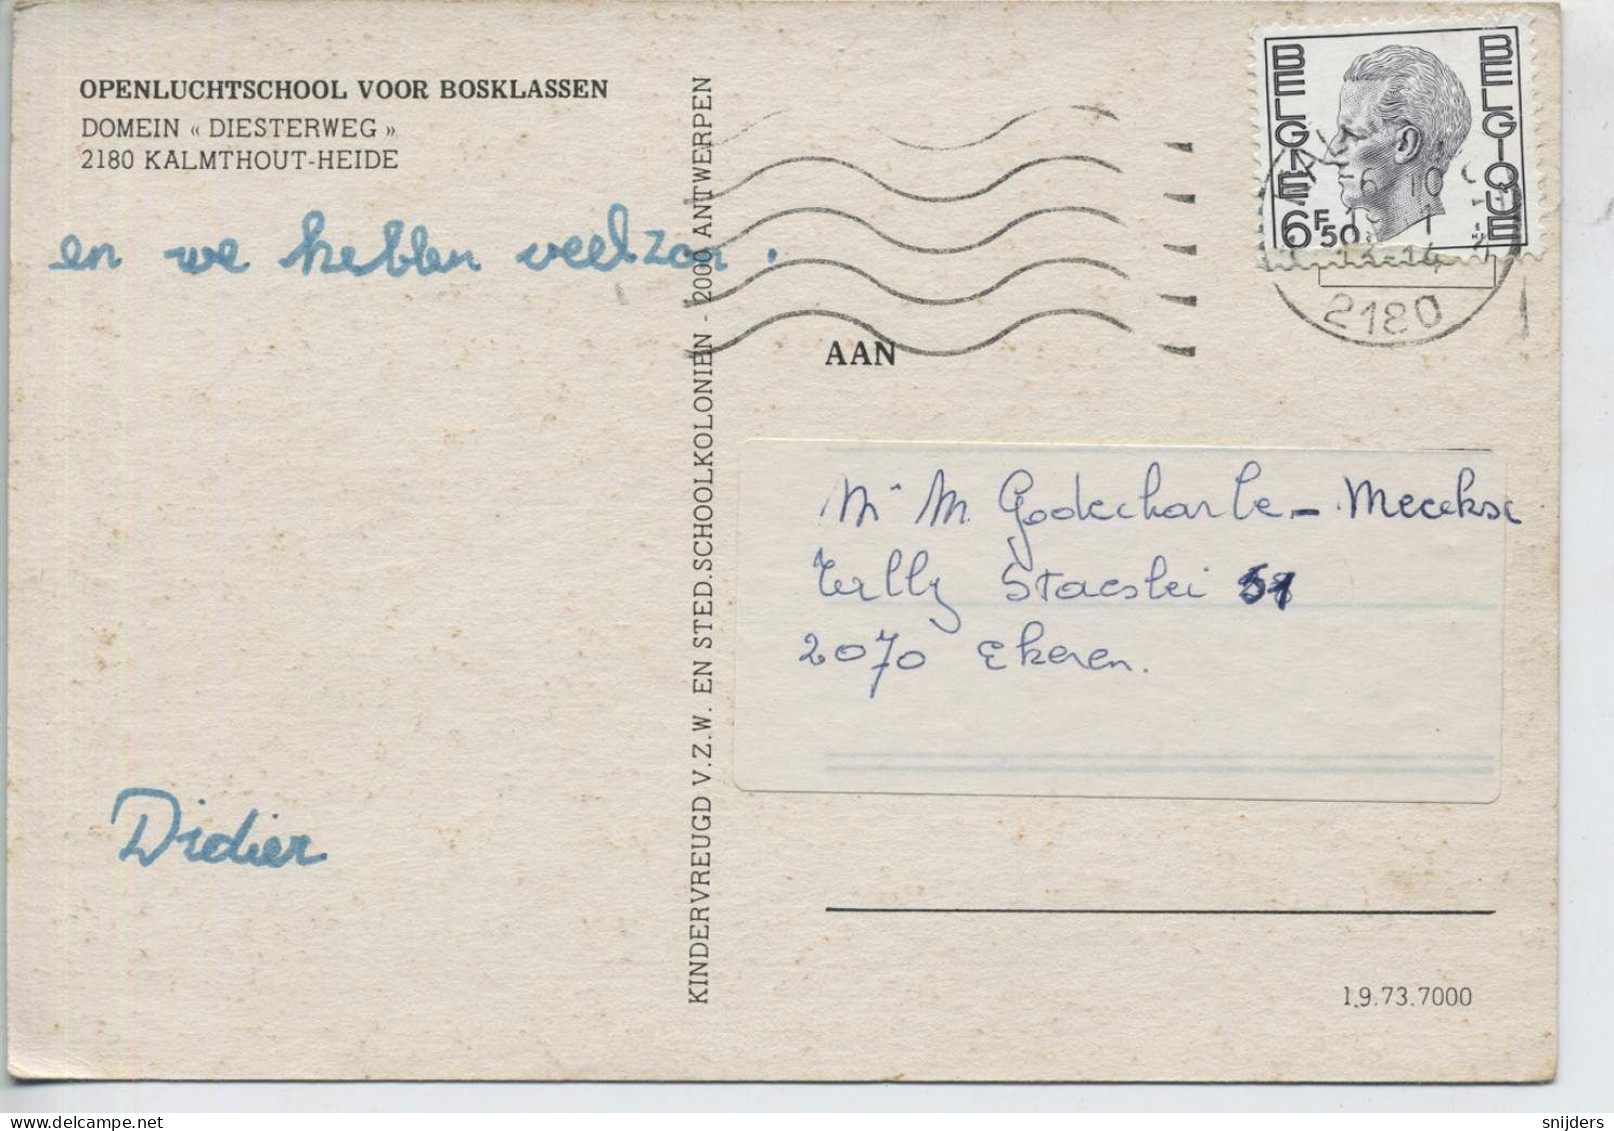 OPENLUCHTSCHOOL VOOR BOSKLASSEN
DOMEIN « DIESTERWEG »
2180 KALMTHOUT-HEIDE
en we hebben veel zon.
Didier
KINDERVREUGD V.Z.W. EN STED.SCHOOLKOLONIEN - 2000 ANTWERPEN
BELGIE
BELGIQUE
6F50
2180
AAN
Mr M Godecharle - Meeckse
Willy Staeslei
2070 Ekeren.
1.9.73.7000
snijders